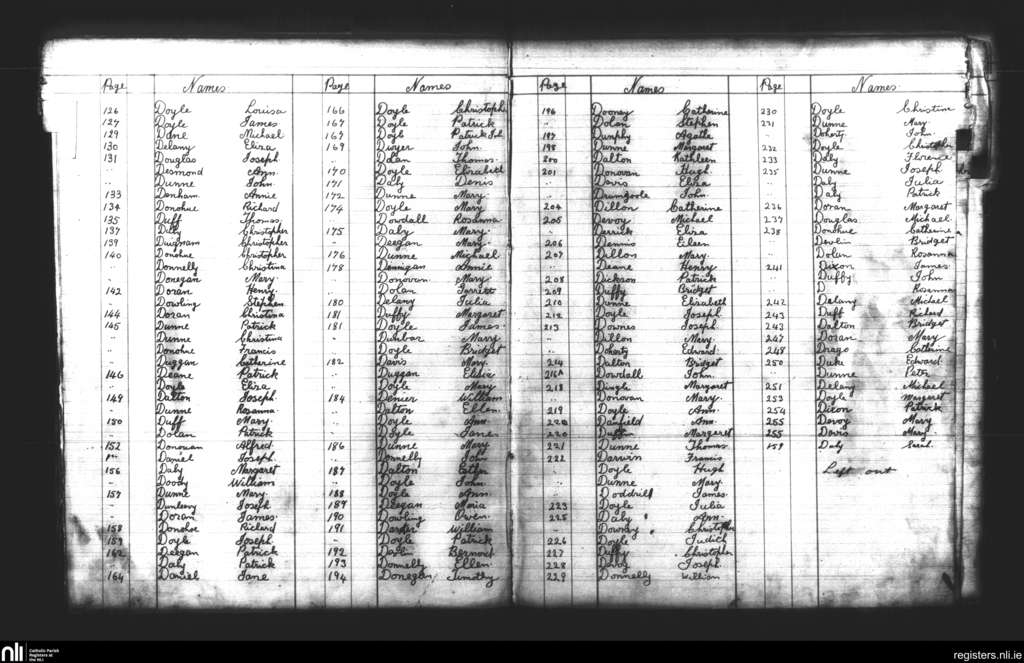 Page Names
126 Doyle Louisa
127 Doyle James
129 Michael
130 Delany Eliza
131 Douglas Joseph
.. Desmond Ann
.. Dunne John
133 Denham Annie
134 Donohue Richard
135 Duff Thomas
137 Christopher
139 Duignam Christopher
140 Donohue Christopher
.. Donnelly Christina
.. Donegan Mary
142 Doran Henry
.. Dowling Stephen
144 Doran Christina
145 Dunne Patrick
.. Dunne Christina
.. Donohue Francis
.. Duggan Catherine
146 Deane Patrick
.. Doyle Eliza
149 Dalton Joseph
.. Dunne Rosanna
150 Duff Mary
.. Dolan Patrick
152 Donovan Alfred
Daniel Joseph
156 Daly Margaret
.. Doody William
157 Dunne Mary
.. Dunleavy Joseph
.. Doran James
158 Donohoe Richard
159 Doyle Joseph
162 Deegan Patrick
.. Daly Patrick
164 Daniel Jane
Page Names
166 Doyle Christoph
167 Doyle Patrick
167 Doyle Patrick
169 Dwyer John
.. Dolan Thomas
170 Doyle Elizabeth
171 Daly Denis
172 Dunne Mary
174 Doyle Mary
.. Dowdall Rosanna
175 Daly Mary
.. Deegan Mary
176 Dunne Michael
178 Dennigan Annie
.. Donovan Mary
.. Dolan Jarrett
180 Delany Julia
181 Duffy Margaret
181 Doyle James
- Dunbar Mary
.. Doyle Bridget
182 Davis Mary
.. Duggan Elisia
.. Doyle Mary
184 Denier William
.. Dalton Ellen
.. Doyle Ann
.. Doyle Jane
186 Dunne Mary
.. Donnelly John
187 Dalton Esther
.. Doyle John
188 Doyle Ann
189 Deegan Maria
190 Dowling Owen
191 William
- Doyle Patrick
192 Bernard
193 Donnelly Ellen
194 Donegan Timothy
Page Names
196 Dooney Catherine
.. Dolan Stephen
197 Dunphy Agatha
198 Dunne Margaret
200 Dalton Kathleen
201 Donovan Hugh
.. Davis Eliza
.. Drumgoole John
204 Dillon Catherine
205 Devoy Michael
.. Derrick Eliza
206 Dennis Eileen
207 Dillon Mary
.. Deane Henry
208 Dickson Patrick
209 Duffy Bridget
210 Dunne Elizabeth
212 Doyle Joseph
213 Downes Joseph
.. Dillon Mary
.. Doherty Edward
214 Dalton Bridget
216A Dowdall John
218 Dingle Margaret
.. Donovan Mary
219 Doyle Ann
220 Danfield Ann
220 Margaret
221 Dunne Thomas
222 Darwin Francis
Doyle Hugh
Dunne Mary
Doddrill James
223 Doyle Julia
225 Daly Ann
- Downey Christopher
226 Doyle Judith
227 Duffy Christopher
228 Devoy Joseph
229 Donnelly William
Page Names
230 Doyle Christina
231 Dunne Mary
.. Doherty John
232 Doyle Christopher
233 Daly Florence
235 Dunne Joseph
.. Daly Julia
.. Daly Patrick
236 Doran Margaret
237 Douglas Michael
238 Donohue Catherine
.. Devlin Bridget
.. Dolan Rosanna
241 Dixon James
.. Duffy John
.. D Rosanna
242 Delany Michael
243 Duff Richard
243 Dalton Bridget
247 Doran Mary
248 Drago Catherine
250 Duke Edward
.. Dunne Peter
251 Delany Michael
253 Doyle Margaret
254 Dixon Patrick
255 Devoy Mary
255 Davis Mary
159 Daly Sarah
Left out
nli Catholic Parish Registers at the NLI
registers.nli.ie